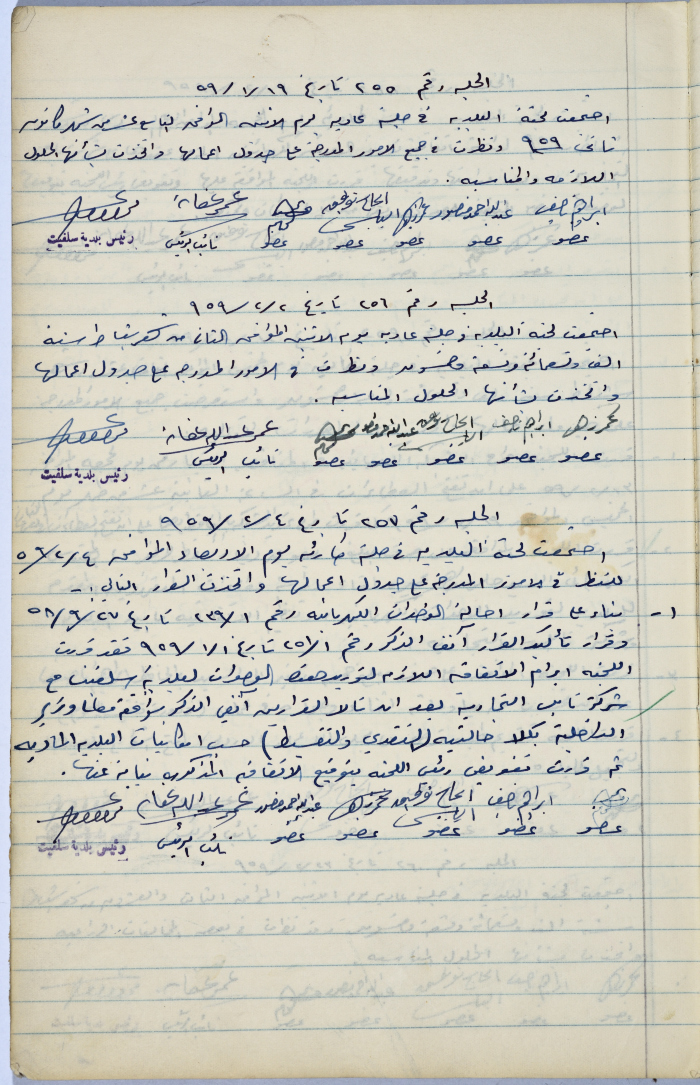 الجلسه رقم ٢٥٥ تاريخ ١٩/١/٥٩
اجتمعت لجنة البلديه في جلسة عاديه يوم الاثنين الموافق التاسع عشر من شهر كانون
ثاني ٩٥٩ ونظرت في جميع الامور المدرجة على جدول اعمالها واتخذت بشأنها الحلول
اللازمه والمناسبه .
ابراهيم عبدالله احمد منصور الحاج عمر عفانة
عضو عضو عضو عضو عضو نائب الرئيس رئيس بلدية سلفيت
الجلسه رقم ٢٥٦ تاريخ ٢/٢/٩٥٩
اجتمعت لجنة البلديه في جلسة عاديه يوم الاثنين الموافق الثاني من شهر شباط سنة
الف وتسعمائة وتسعة وخمسون ونظرت في الامور المدرجه على جدول اعمالها
واتخذت بشأنها الحلول المناسبه .
ابراهيم الحاج عبدالله احمد عمر عبدالله عفانة
عضو عضو عضو عضو عضو نائب الرئيس رئيس بلدية سلفيت
الجلسه رقم ٢٥٧ تاريخ ٤/٢/٩٥٩
اجتمعت لجنة البلديه في جلسة طارئه يوم الاربعاء الموافق ٤/٢/٥٩
للنظر في الامور المدرجة على جدول اعمالها واتخذت القرار التالي :-
١- بناء على قرار احالة الوحدات الكهربائيه رقم ٢٣٩/١ تاريخ ٢٧/٩/٥٨
وقرار تأكيد القرار آنف الذكر رقم ٢٥١/١ تاريخ ١/١/٩٥٩ فقد قررت
اللجنه ابرام الاتفاقيه اللازمه لتوريد هذه الوحدات لبلدية سلفيت مع
شركة التجارية بعد ان نالا القرارين آنفي الذكر موافقة عطا وزير
الداخلية بكلا حالتيه (النقدي والتقسيط) حسب امكانيات البلديه الماديه
ثم قررت تفويض رئيس اللجنه بتوقيع الاتفاقيه المذكوره نيابة عنها .
ابراهيم الحاج عبدالله احمد منصور عمر عبدالله عفانه
عضو عضو عضو عضو عضو نائب الرئيس رئيس بلدية سلفيت